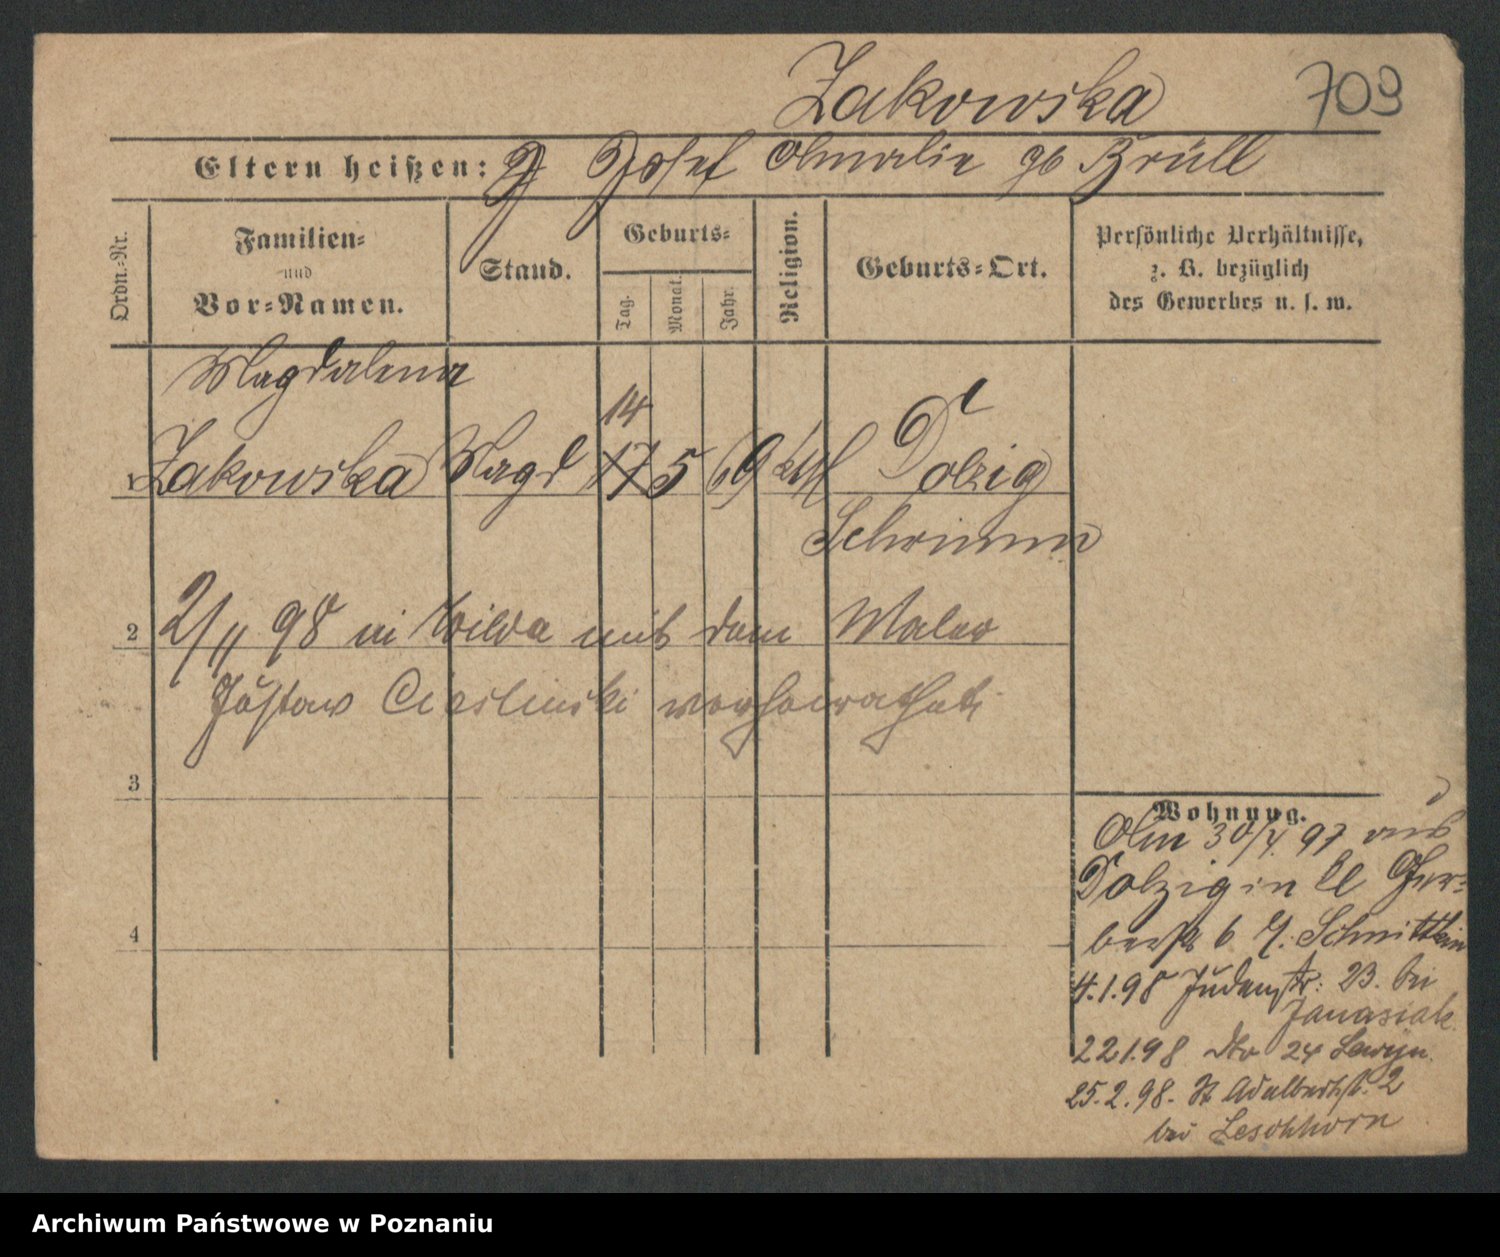 Zakowska 709
Eltern heißen: Josef Amalie gb Brüll
Ordn.-Nr.
Familien-
und
Vor-Namen.
Stand.
Geburts-
Tag.
Monat.
Jahr.
Religion.
Geburts-Ort.
Persönliche Verhältnisse,
z. B. bezüglich
des Gewerbes u. s. w.
Magdalena
14
1 Zakowska Magd 17 5 69 kath Dolzig
Schrimm
2 2/11 98 in Wilda mit dem Maler
Gustav Cieslinski verheirathet.
3
4
Wohnung.
Am 30/4 97 aus
Dolzig in kl Ger-
berstr 6 b. Schnittkin
4.1.98 Judenstr: 23. bei
Janasiak.
22.1.98 dto 24 Lewyn.
25.2.98. St Adalbertstr. 2
bei Leschhorn
Archiwum Państwowe w Poznaniu